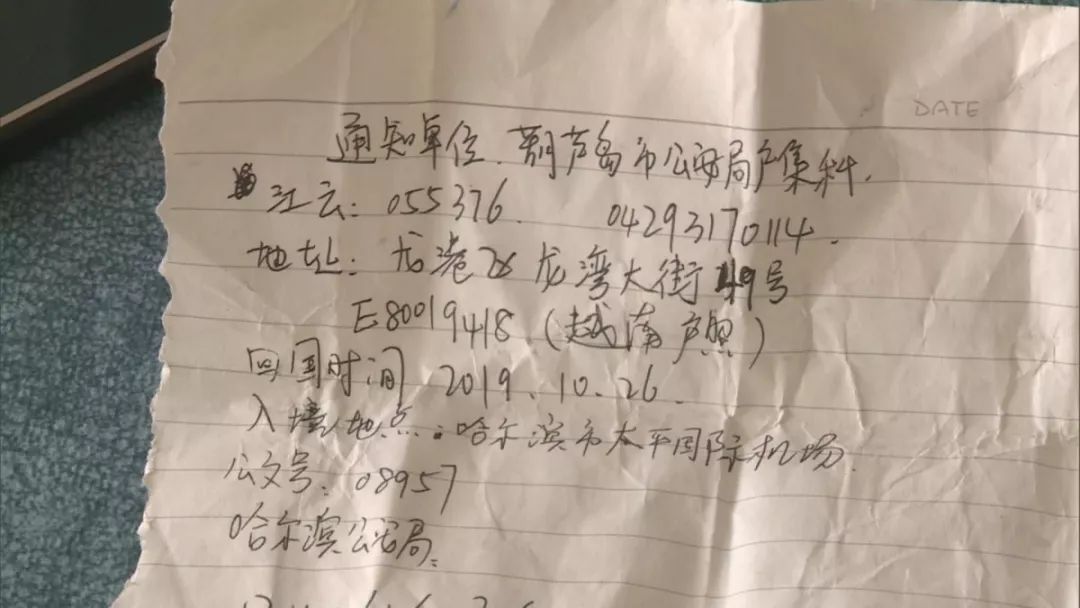 DATE
通知单位、葫芦岛市公安局户集科.
江云: 055376. 04293170114.
地址: 龙港区 龙湾大街49号
E80019418 (越南户照)
回国时间 2019.10.26.
入境地点:哈尔滨市太平国际机场.
公文号: 08957
哈尔滨公安局: